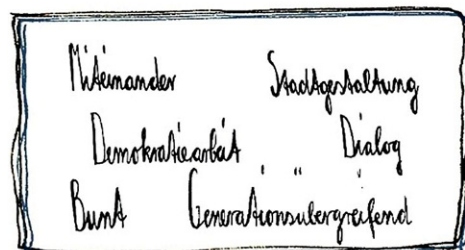 Miteinander Stadtgestaltung
Demokratiearbeit Dialog
Bunt Generationsübergreifend